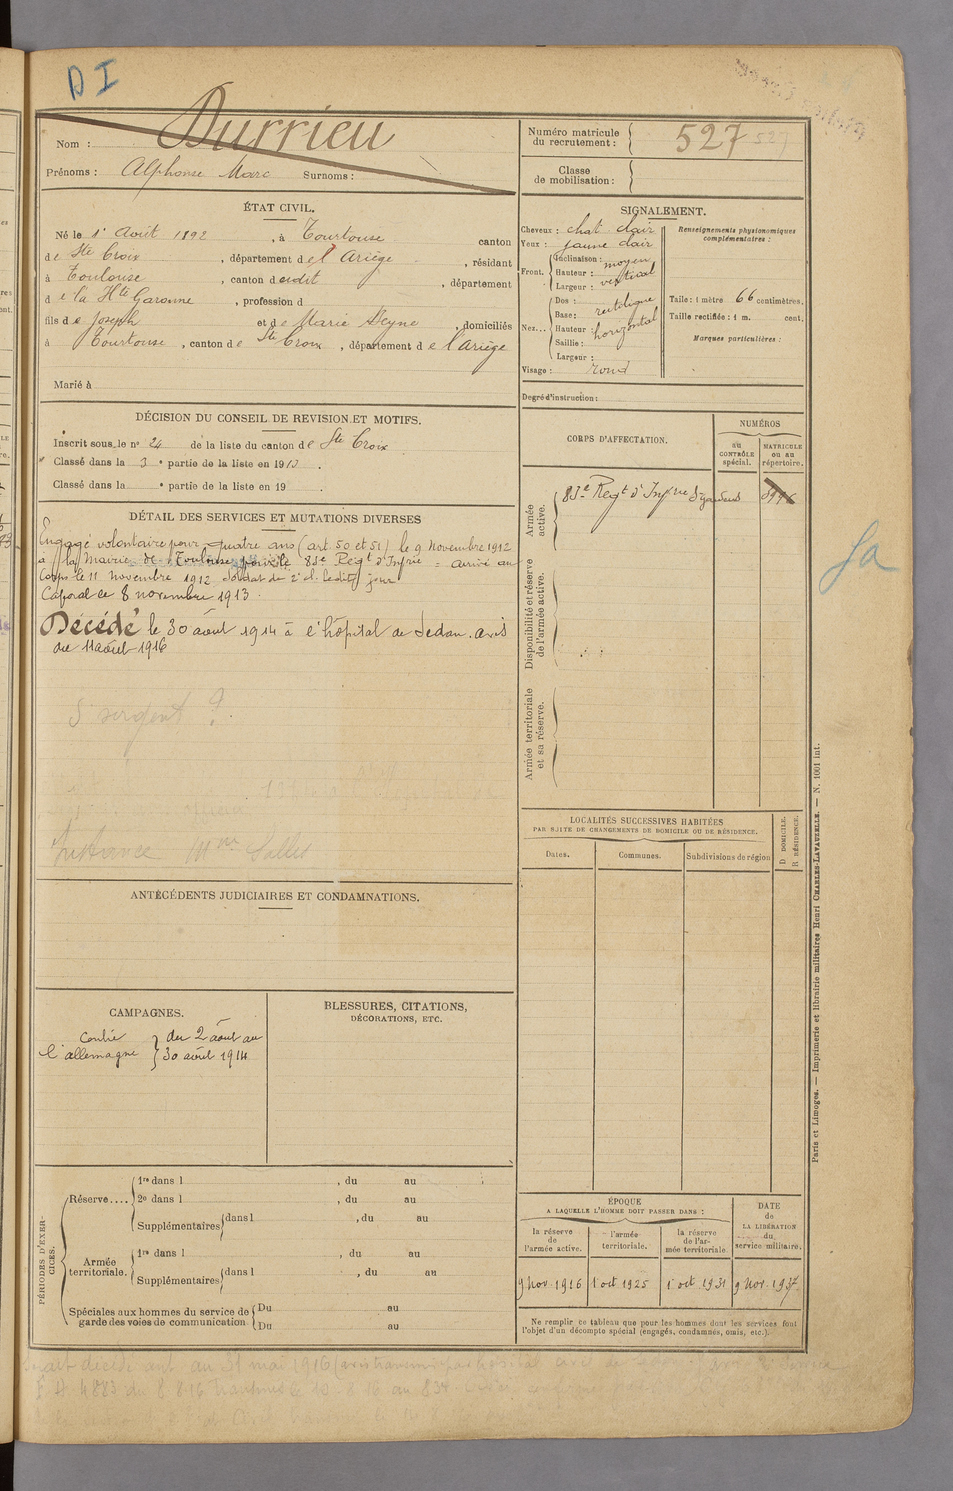 D I
Nom : Durrieu
Prénoms : Alphonse Marc Surnoms :
Numéro matricule du recrutement : 527 527
Classe de mobilisation :
ÉTAT CIVIL.
Né le 1er Août 1892, à Tourtouse canton
de Ste Croix, département de l'Ariège, résidant
à Toulouse, canton dudit, département
de la Hte Garonne, profession d
fils de Joseph et de Marie Seyne, domiciliés
à Tourtouse, canton de Ste Croix, département de l'Ariège
Marié à
SIGNALEMENT.
Cheveux : chat clair
Yeux : jaune clair
Front. Inclinaison : moyen
Hauteur : vertical
Largeur :
Nez... Dos : rectiligne
Base : horizontal
Hauteur :
Saillie :
Largeur :
Visage : rond
Renseignements physionomiques complémentaires :
Taille : 1 mètre 66 centimètres.
Taille rectifiée : 1 m. cent.
Marques particulières :
Degré d'instruction :
DÉCISION DU CONSEIL DE REVISION ET MOTIFS.
Inscrit sous le n° 24 de la liste du canton de Ste Croix
Classé dans la 3e partie de la liste en 1913.
Classé dans la e partie de la liste en 19
DÉTAIL DES SERVICES ET MUTATIONS DIVERSES
Engagé volontaire pour quatre ans (art. 50 et 51) le 9 Novembre 1912
à la Mairie de Toulouse pour le 83e Regt d'Infrie = arrivé au
Corps le 11 novembre 1912 Soldat de 2e cl. ledit jour
Caporal le 8 novembre 1913.
Décédé le 30 août 1914 à l'hôpital de Sedan. avis
du 11 août 1916
S sergent ?
Mme
CORPS D'AFFECTATION.
NUMÉROS
au CONTRÔLE spécial.
MATRICULE ou au répertoire.
Armée active.
83e Regt d'Infrie
Disponibilité et réserve de l'armée active.
Armée territoriale et sa réserve.
LOCALITÉS SUCCESSIVES HABITÉES
PAR SUITE DE CHANGEMENTS DE DOMICILE OU DE RÉSIDENCE.
Dates. Communes. Subdivisions de région
D DOMICILE.
R RÉSIDENCE.
ANTÉCÉDENTS JUDICIAIRES ET CONDAMNATIONS.
CAMPAGNES.
Contre l'allemagne } du 2 août au
30 août 1914
BLESSURES, CITATIONS,
DÉCORATIONS, ETC.
PÉRIODES D'EXERCICES.
Réserve.... 1re dans l , du au
2e dans l , du au
Supplémentaires dans l , du au
Armée territoriale. 1re dans l , du au
Supplémentaires dans l , du au
Spéciales aux hommes du service de garde des voies de communication Du au
Du au
ÉPOQUE
A LAQUELLE L'HOMME DOIT PASSER DANS :
la réserve de l'armée active.
l'armée territoriale.
la réserve de l'armée territoriale.
DATE de LA LIBÉRATION du service militaire.
9 nov. 1916 1 oct 1925 1 oct 1931 9 nov. 1937
Ne remplir ce tableau que pour les hommes dont les services font
l'objet d'un décompte spécial (engagés, condamnés, omis, etc.).
Paris et Limoges. — Imprimerie et librairie militaires Henri CHARLES-LAVAUZELLE. — N. 1001 int.